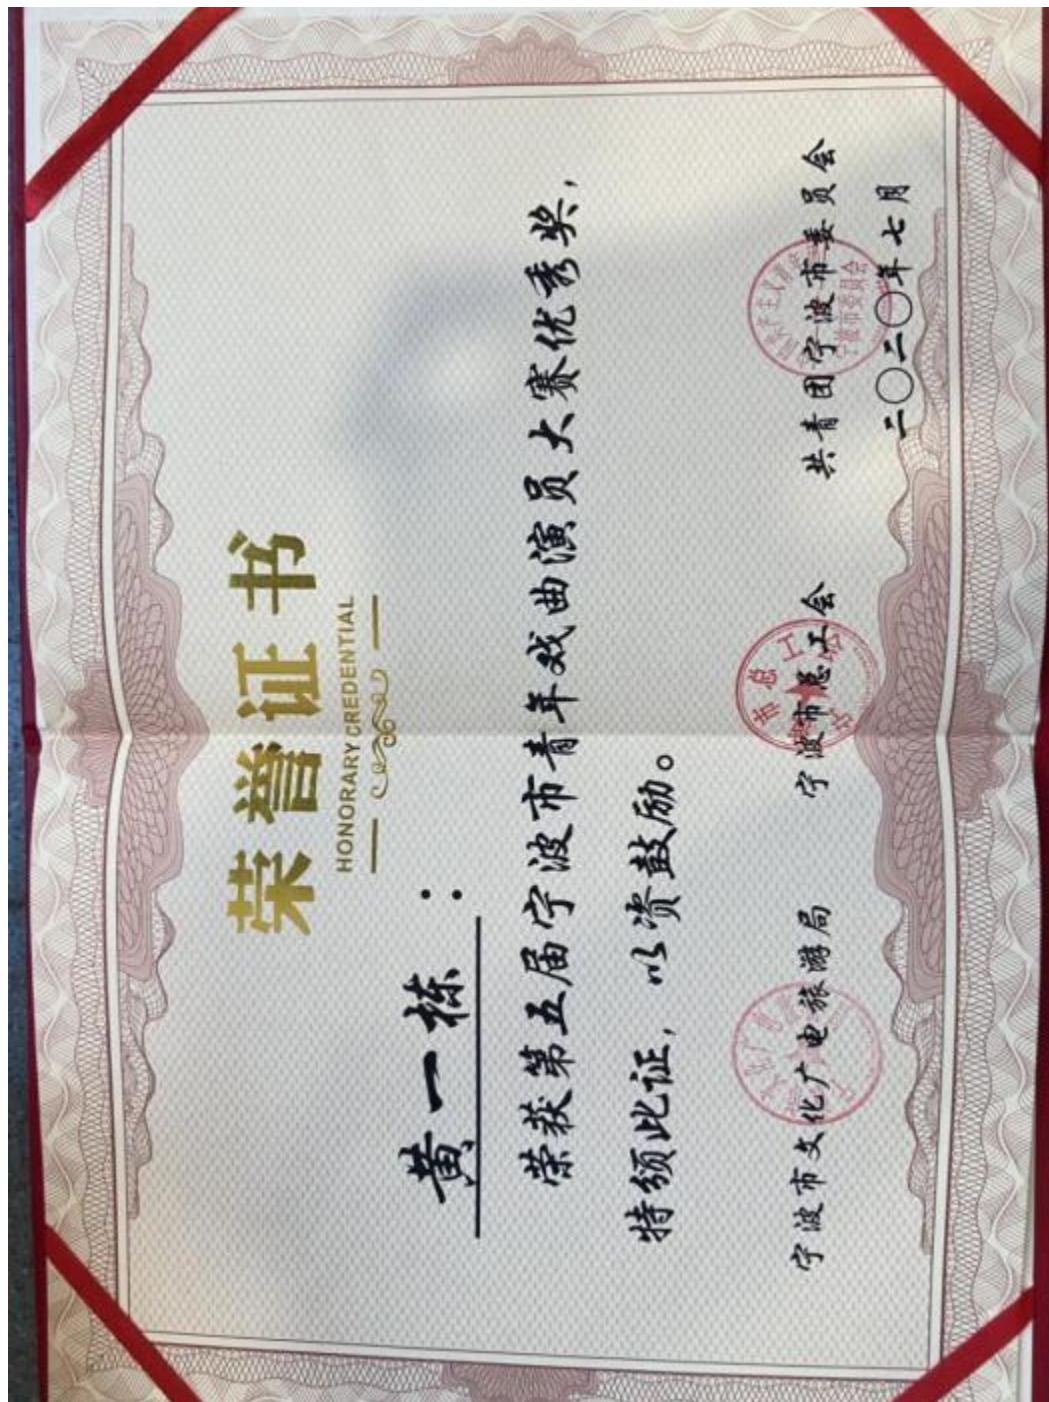 荣誉证书
HONORARY CREDENTIAL
黄一栋：
荣获第五届宁波市青年戏曲演员大赛优秀奖，
特颁此证，以资鼓励。
宁波市文化广电旅游局 宁波市总工会 共青团宁波市委员会
二〇二〇年七月
市总工
宁波市委员会